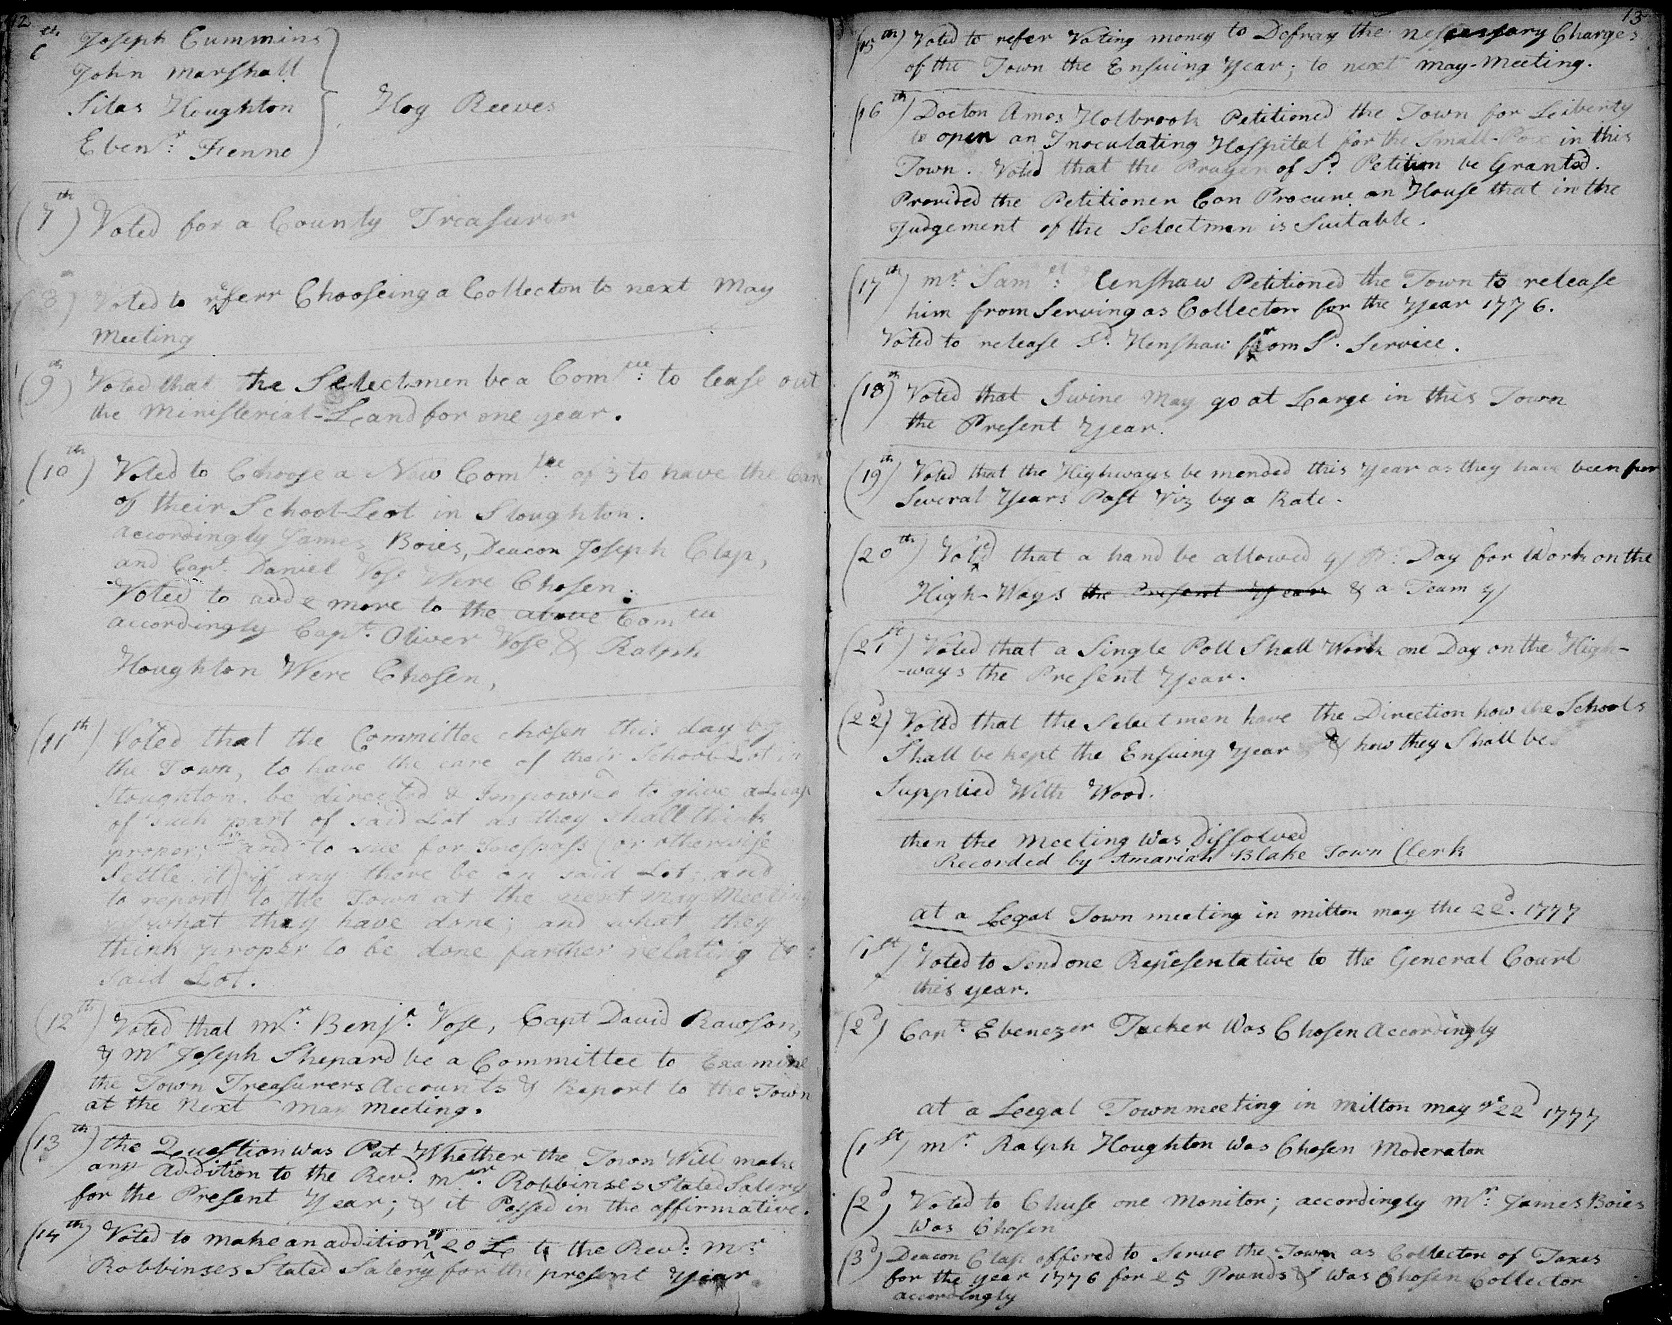 12
6th Joseph Cummins
John Marshall
Silas Houghton
Hog Reeves
Ebenr. Fenno
(7th) Voted for a County Treasurer
(8) Voted to referr Chooseing a Collector to next May
Meeting
(9th) Voted that the Selectmen be a Comtee: to lease out
the Ministereal-Land for one year.
(10th) Voted to Choose a New Comtee of 3 to have the Care
of their School-Leot in Stoughton.
accordingly James Boies, Deacon Joseph Clap,
and Capt. Daniel Vose Were Chosen.
Voted to add 2 more to the above Comtee
accordingly Capt. Oliver Vose & Ralph
Houghton Were Chosen,
(11th) Voted that the Committee chosen this day by
the Town, to have the care of their School-Lot in
Stoughton. be directed & Impowred to give a Lease
of such part of said Lot as they shall think
proper; and to sue for trespass (or otherwise
settle it) if any there be on said Lot; and
to report to the Town at the next may Meeting
what they have done; and what they
think proper to be done farther relating to
said Lot.
(12th) Voted that mr. Benjr. Vose, Capt David Rawson,
& mr Joseph Shepard be a Committee to Examine
the Town Treasurers Accounts & Report to the Town
at the Next May meeting.
(13th) the Question was Put Whether the Town Will make
any Addition to the Revd. mr. Robbinses Stated Salery
for the Present Year; & it Passed in the affirmative.
(14th) Voted to make an addition of 20 £ to the Revd: Mr.
Robbinses Stated Salery for the present Year
13
(15th) Voted to refer Voting money to Defray the nessessary Charges
of the Town the Ensuing Year; to next may-Meeting.
(16th) Doctor Amos Holbrook Petitioned the Town for Leiberty
to open an Inoculating Hospital for the Small-Pox in this
Town. Voted that the Prayer of Sd. Petition be Granted.
Provided the Petitioner Can Procure an House that in the
Judgement of the Selectmen is Suitable.
(17th) mr. Samel: Henshaw Petitioned the Town to release
him from Serving as Collector for the Year 1776.
Voted to release Sd. Henshaw from Sd. Service.
(18th) Voted that Swine May go at Large in this Town
the Present Year.
(19th) Voted that the Highways be mended this Year as they have been for
Several Years Past Viz by a Rate.
(20th) Voted that a hand be allowed 4/ Pr: Day for Work on the
High-Ways the Present Year & a Team 4/
(21st) Voted that a Single Poll Shall Work one Day on the High-
-ways the Present Year.
(22d) Voted that the Selectmen have the Direction how the Schools
Shall be kept the Ensuing Year & how they Shall be
Supplied With Wood.
then the Meeting was Dissolved
Recorded by Amariah Blake Town Clerk
at a Legal Town meeting in milton may the 22d. 1777
(1st) Voted to Send one Representative to the General Court
this year.
(2d) Capt. Ebenezer Tucker Was Chosen Accordingly
at a Leegal Town meeting in milton may ye 22d 1777
(1st) mr. Ralph Houghton Was Chosen Moderator
(2d) Voted to Chuse one Monitor; accordingly mr. James Boies
Was Chosen
(3d) Deacon Clap offered to Serve the Town as Collector of Taxes
for the year 1776 for 25 Pounds & Was Chosen Collector
accordingly